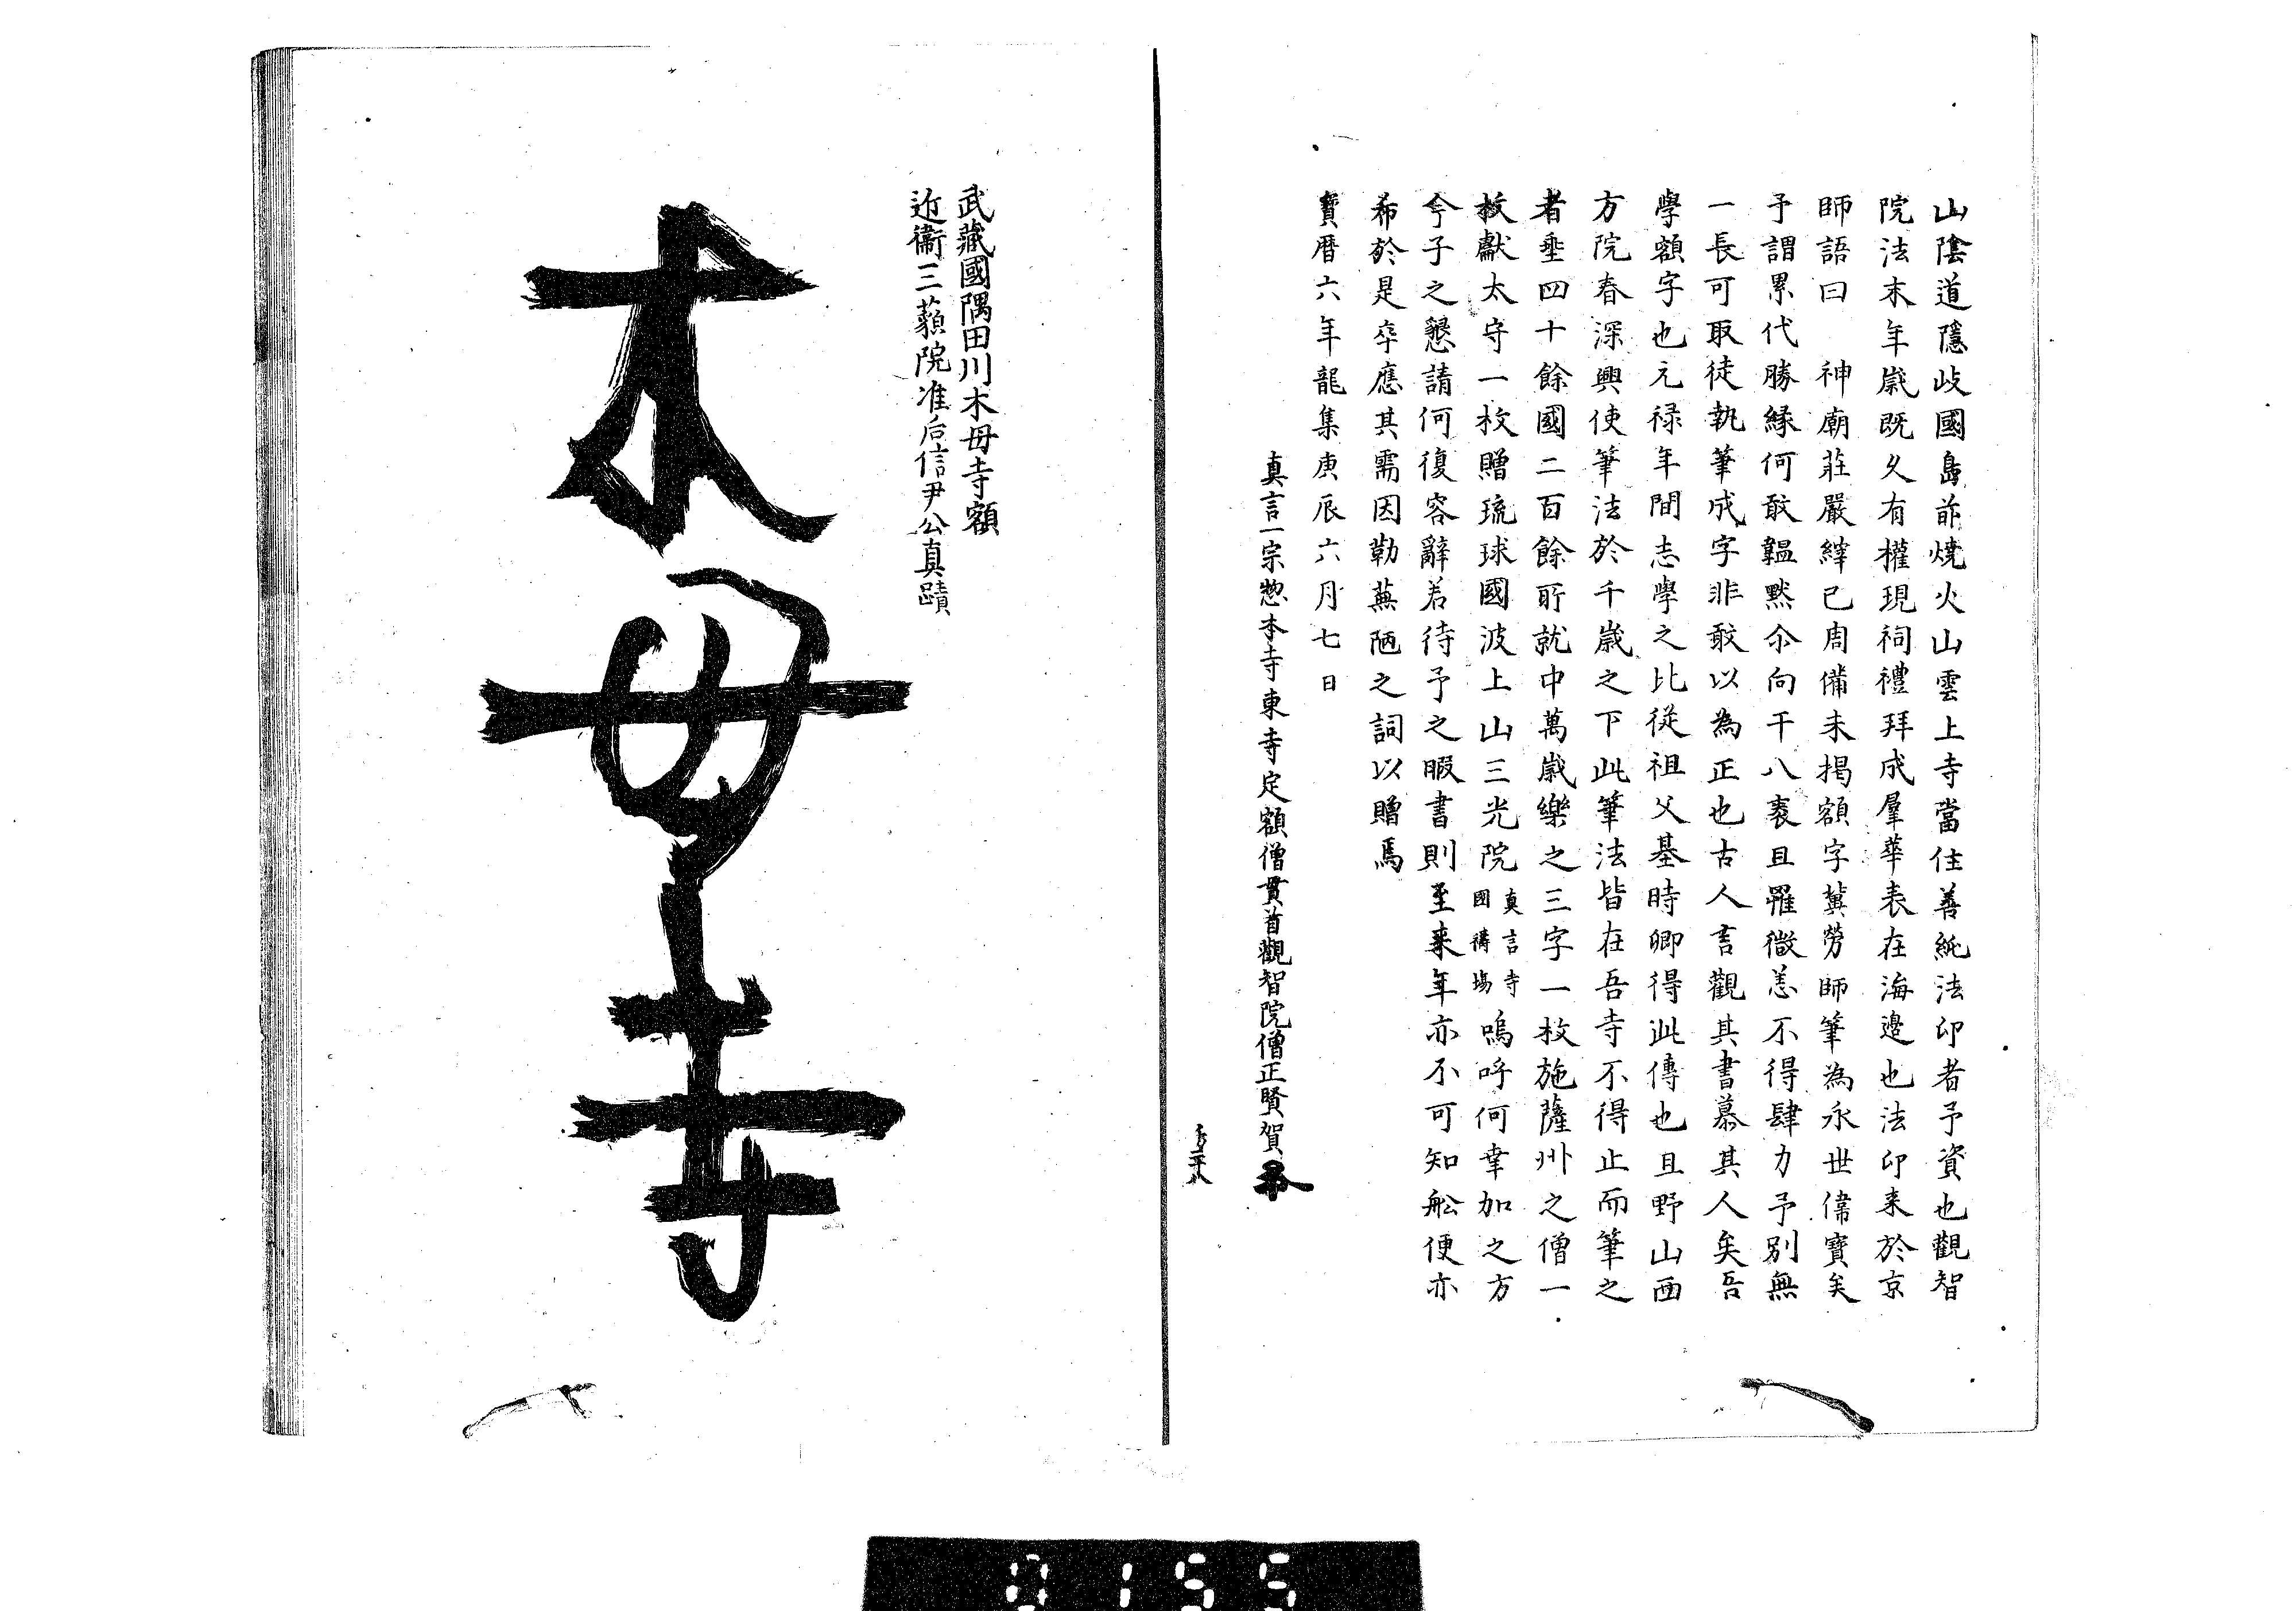 山陰道隱岐國島前燒火山雲上寺當住善純法印者予資也觀智
院法末年歲既久有權現祠禮拜成羣華表在海邊也法印来於京
師語曰　神廟莊嚴縡已周備未掲額字冀勞師筆為永世偉寶矣
予謂累代勝縁何敢韞黙尒向干八袠且罹微恙不得肆力予別無
一長可取徒執筆成字非敢以為正也古人言觀其書慕其人矣吾
學額字也元禄年間志學之比從祖父基時卿得此傳也且野山西
方院春深興使筆法於千歲之下此筆法皆在吾寺不得止而筆之
者垂四十餘國二百餘所就中萬歲樂之三字一枚施薩州之僧一
枚獻太守一枚贈琉球國波上山三光院真言寺國禱場嗚呼何幸加之方
今子之懇請何復容辭若待予之暇書則至来年亦不可知舩便亦
希於是卒應其需因勒蕪陋之詞以贈焉
寶暦六年龍集庚辰六月七日
真言一宗惣本寺東寺定額僧貫首觀智院僧正賢賀
武藏國隅田川木母寺額
近衞三藐院准后信尹公真蹟
木母寺
0155